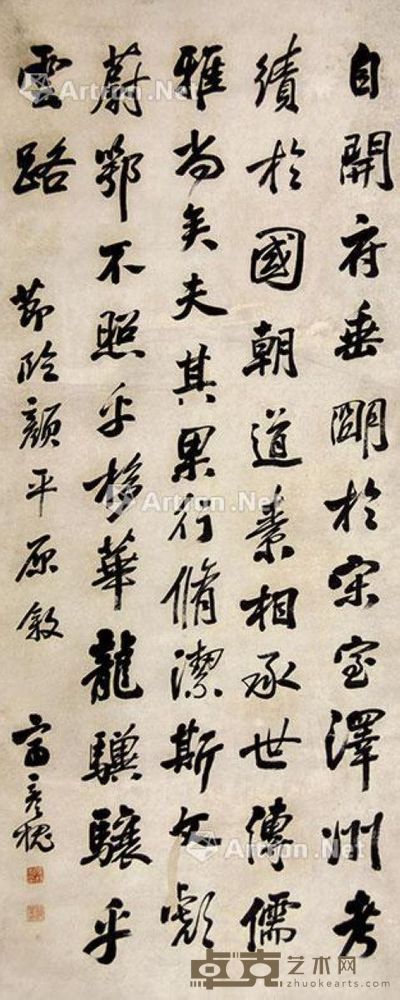 自開府垂朙於宋室澤州考
績於國朝道素相承世傳儒
雅尚矣夫其果行脩潔斯文彪
蔚鄂不照乎栘華龍驥驤乎
雲路
節臨顏平原敘
齊彥槐
Artron.Net
Artron.Net
Artron.Net
Artron.Net
卓克艺术网
www.zhuokearts.com